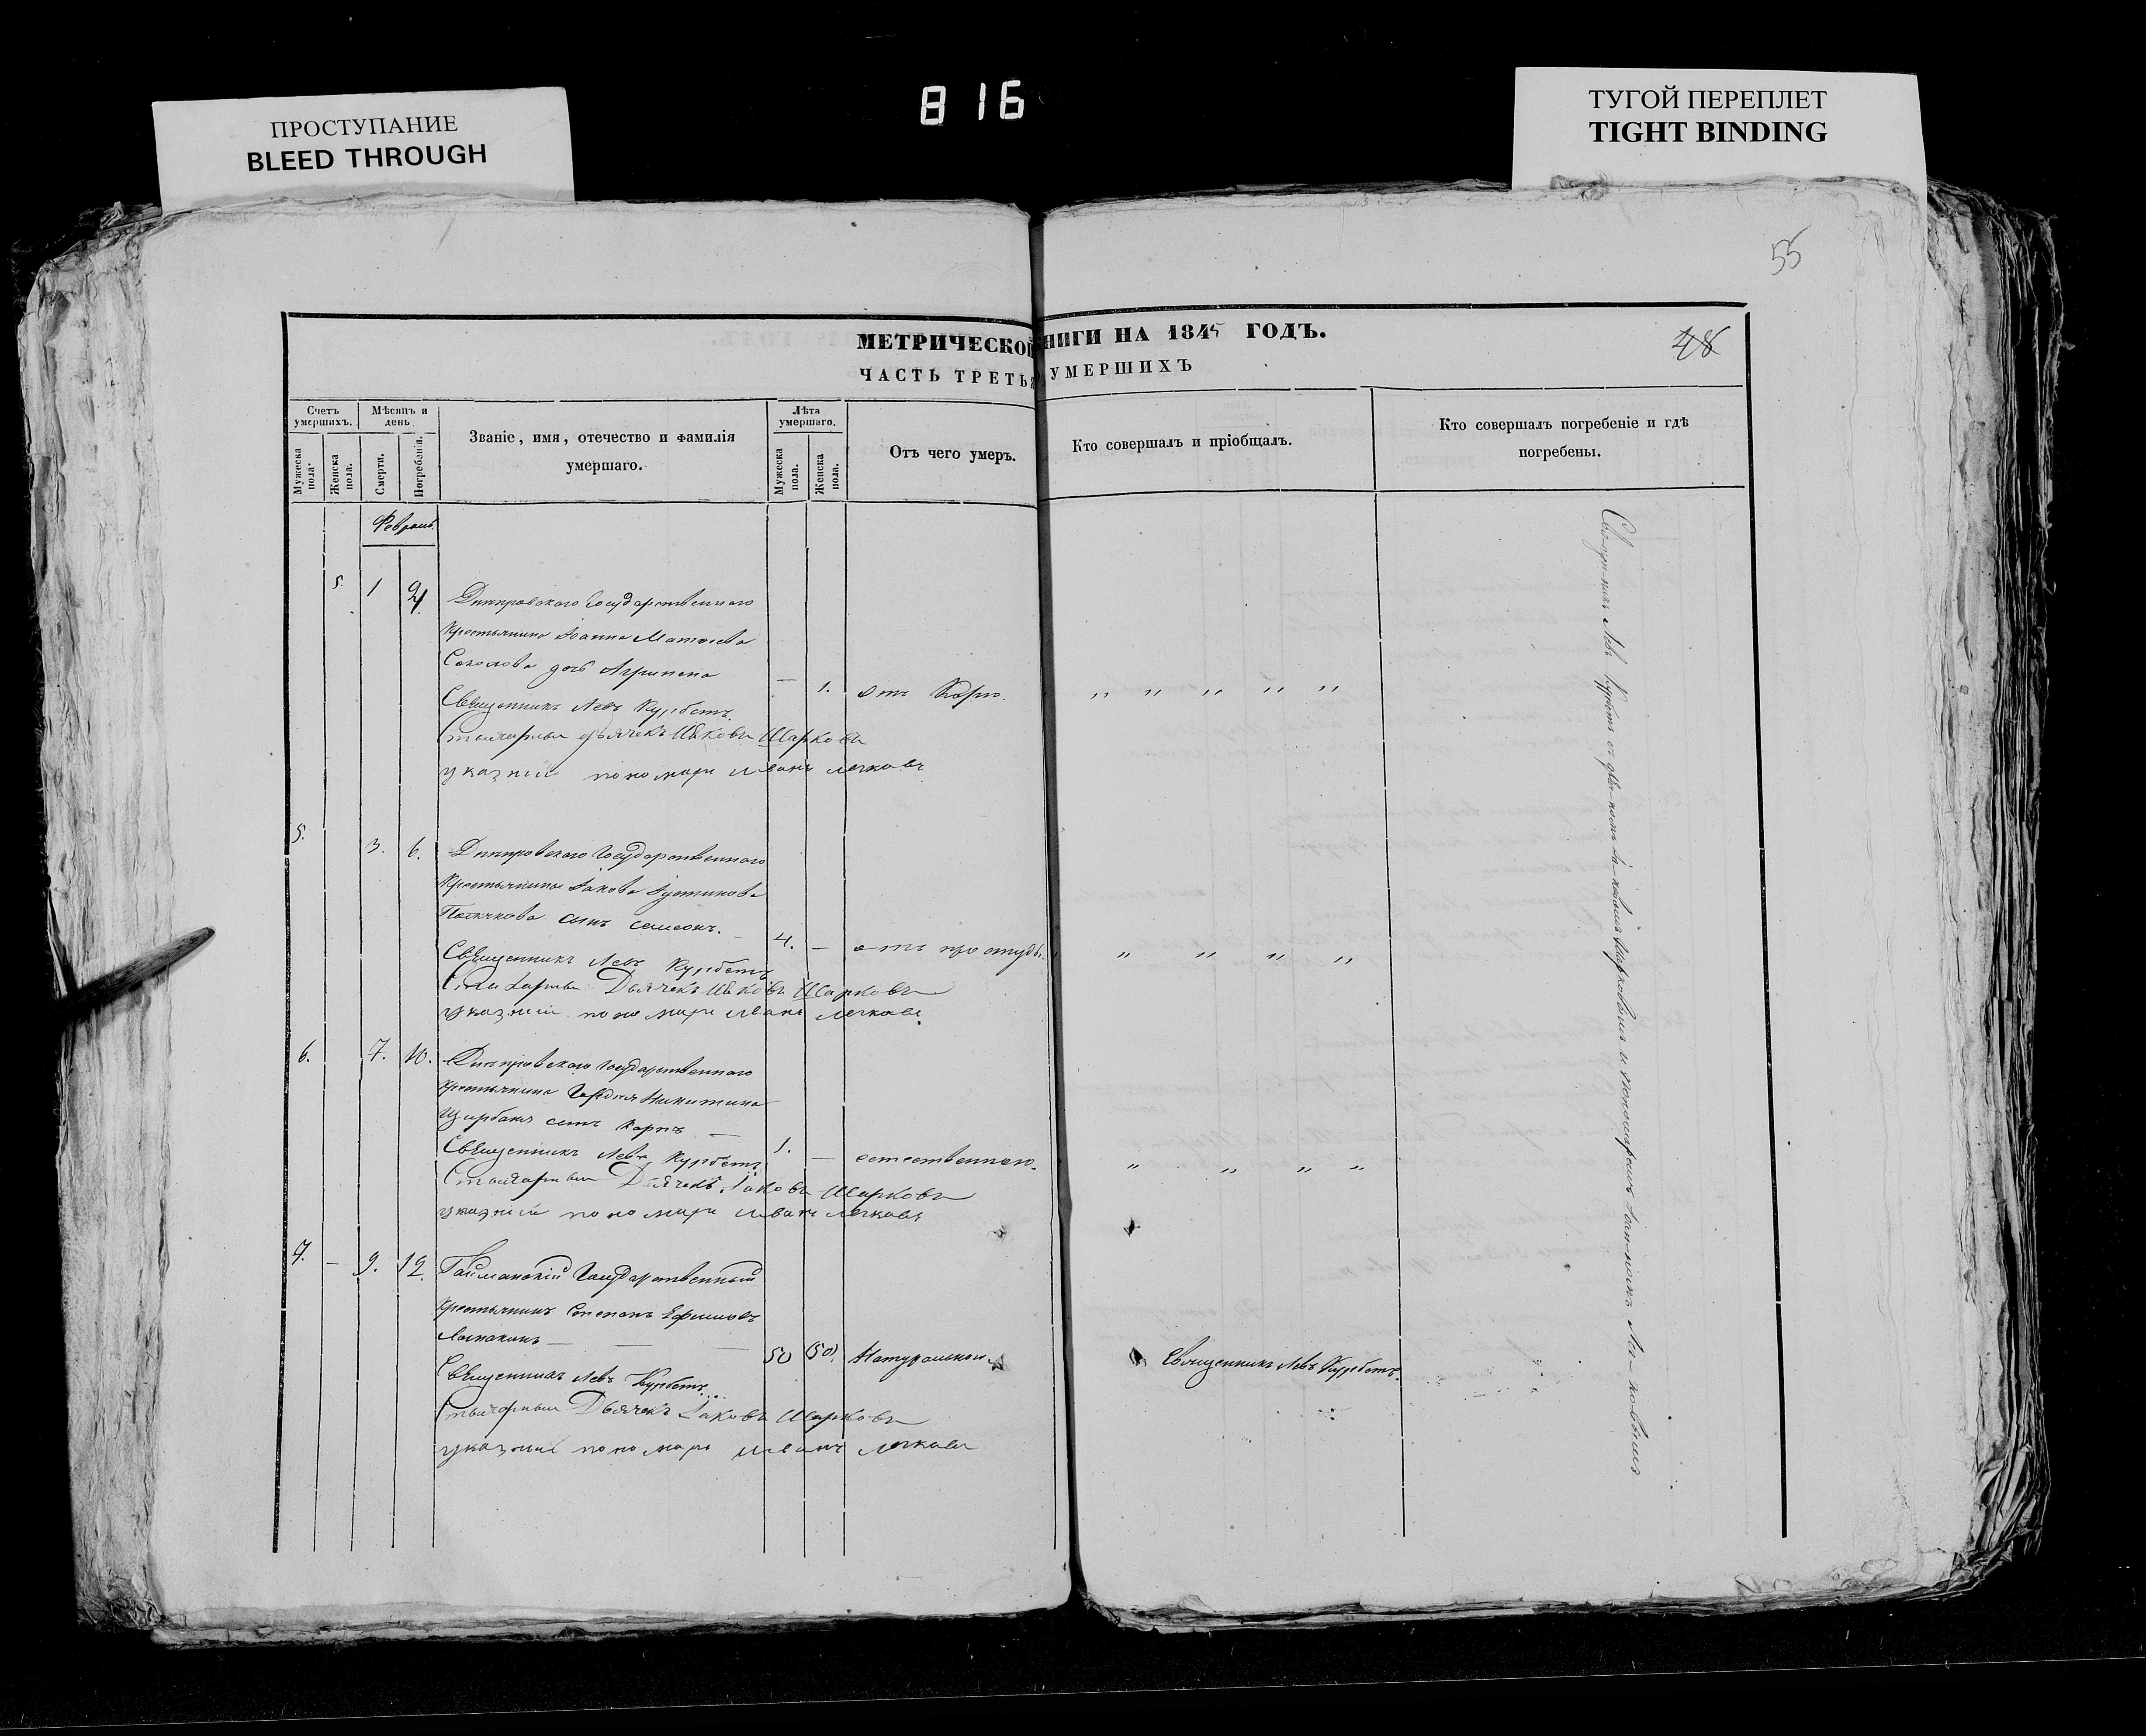 8 16
ПРОСТУПАНИЕ
BLEED THROUGH
ТУГОЙ ПЕРЕПЛЕТ
TIGHT BINDING
55
МЕТРИЧЕСКОЙ НИГИ НА 1845 ГОДЪ.
48
ЧАСТЬ ТРЕТЬЯ УМЕРШИХЪ
Счетъ умершихъ.
Мужеска пола.
Женска пола.
Мѣсяцъ и день
Смерти.
Погребенія.
Званіе, имя, отечество и фамилія
умершаго.
Лѣта умершаго.
Мужеска пола.
Женска пола.
Отъ чего умеръ.
Кто совершалъ и пріобщалъ.
Кто совершалъ погребеніе и гдѣ
погребены.
Февраль
5 1 4 Днепровскаго Государственнаго
Крестьянина Іоанна Матѳеева
Соколова дочь Агрипена
— 1. отъ Кори. " " " " "
Священникъ Левъ Курбетъ.
Стихарный дьячекъ Іаковъ Шарковъ
указній пономарь Иванъ Легковъ
5. 3. 6. Днепровскаго Государственнаго
Крестьянина Іакова Іустинова
сынъ Семеонъ.
4. — отъ простуды. " " " "
Священникъ Левъ Курбетъ
Стихарный Дьячекъ Іаковъ Шарковъ
указній пономарь Иванъ Легковъ
6. 7. 10. Днепровскаго Государственнаго
Крестьянина Гордея Никитина
Щербака сынъ Карпъ —
1. — естественною. " " " "
Священникъ Левъ Курбетъ
Стихарный Дьячекъ Іаковъ Шарковъ
указній пономарь Иванъ Легковъ
7. — 9. 12. Государственный
Крестьянинъ Степанъ Ефимовъ
50 (50). Натуральною Священникъ Левъ Курбетъ.
Священникъ Левъ Курбетъ
Стихарный Дьячекъ Іаковъ Шарковъ
указній пономарь Иванъ Легковъ
Священникъ Левъ Курбетъ съ дьячкомъ Іаковомъ Шарковымъ и пономаремъ Іоанномъ Легковымъ